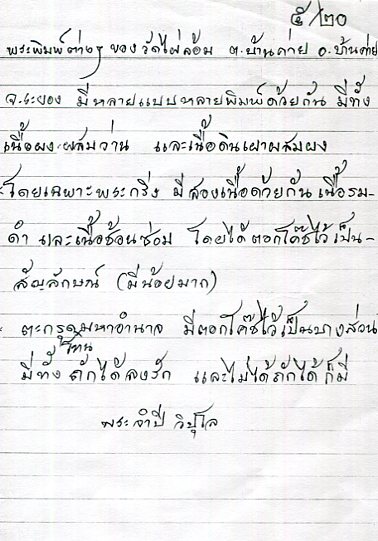 ๕/๒๐
พระพิมพ์ต่างๆ ของ วัดไผ่ล้อม ต.บ้านค่าย อ.บ้านค่าย
จ.ระยอง มีหลายแบบหลายพิมพ์ด้วยกัน มีทั้ง
เนื้อผงผสมว่าน และเนื้อดินเผาผสมผง
โดยเฉพาะพระกริ่ง มีสองเนื้อด้วยกัน เนื้อรม-
ดำ และเนื้อช้อนซ่อม โดยได้ตอกโค๊ชไว้เป็น-
สัญลักษณ์ (มีน้อยมาก)
ตะกรุดมหาอำนาจ มีตอกโค๊ชไว้เป็นบางส่วน
มีทั้ง ถักได้ลงรัก และไม่ได้ถักได้ ก็มี
พระจำปี วิปุโล